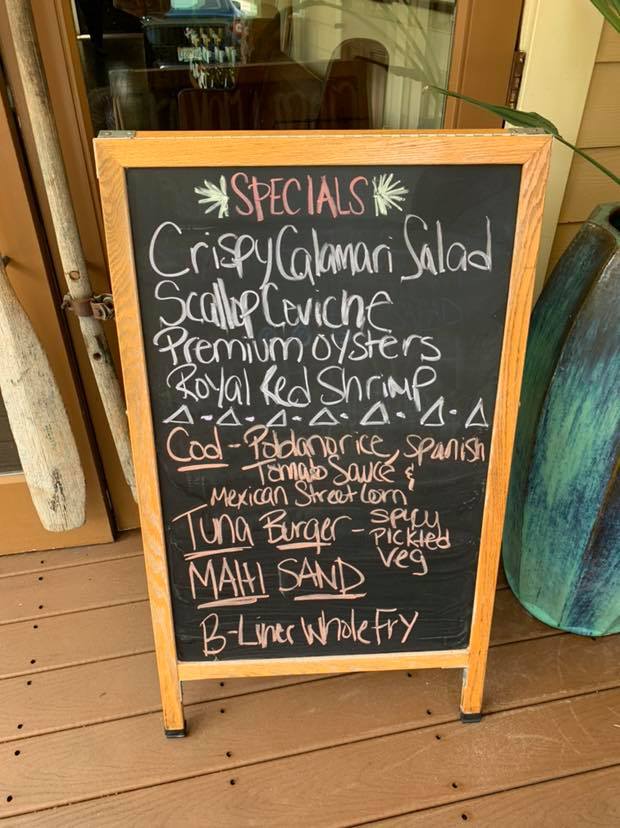 SPECIALS
Crispy Calamari Salad
Scallop Ceviche
Premium oysters
Royal Red Shrimp
Cod - Poblano rice, Spanish
Tomato Sauce &
Mexican Street Corn
Tuna Burger - Spicy
Pickled
Veg
MAHI SAND
B-Liner Whole Fry